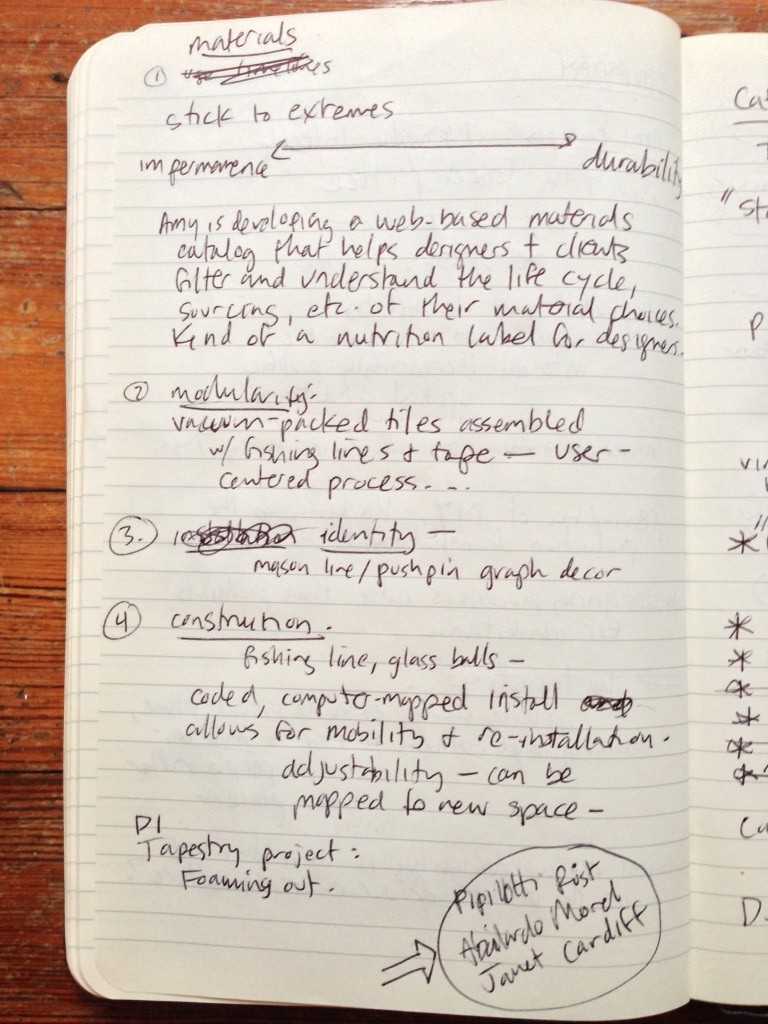 materials
①
stick to extremes
impermanence durability
Amy is developing a web-based materials
catalog that helps designers + clients
filter and understand the life cycle,
sourcing, etc. of their material choices.
Kind of a nutrition label for designers.
② modularity:
vacuum-packed tiles assembled
w/ fishing lines + tape — user-
centered process. . .
③. identity —
mason line/pushpin graph decor
④ construction.
fishing line, glass balls —
coded, computer-mapped install
allows for mobility + re-installation.
adjustability — can be
mapped to new space —
D1
Tapestry project:
Foaming out.
Pipilotti Rist
Abilardo Morel
Janet Cardiff
Cat
"st
P
vi
"
*
*
*
*
*
*
*
Ca
D.